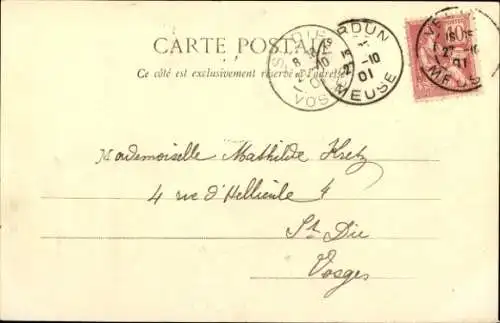 CARTE POSTALE
Ce côté est exclusivement réservé à l'adresse
ST DIE
VOSGES
VERDUN
15
2 -10
01
MEUSE
Mademoiselle Mathilde Kretz
4 rue d'Hellieule 4
St Die
Vosges